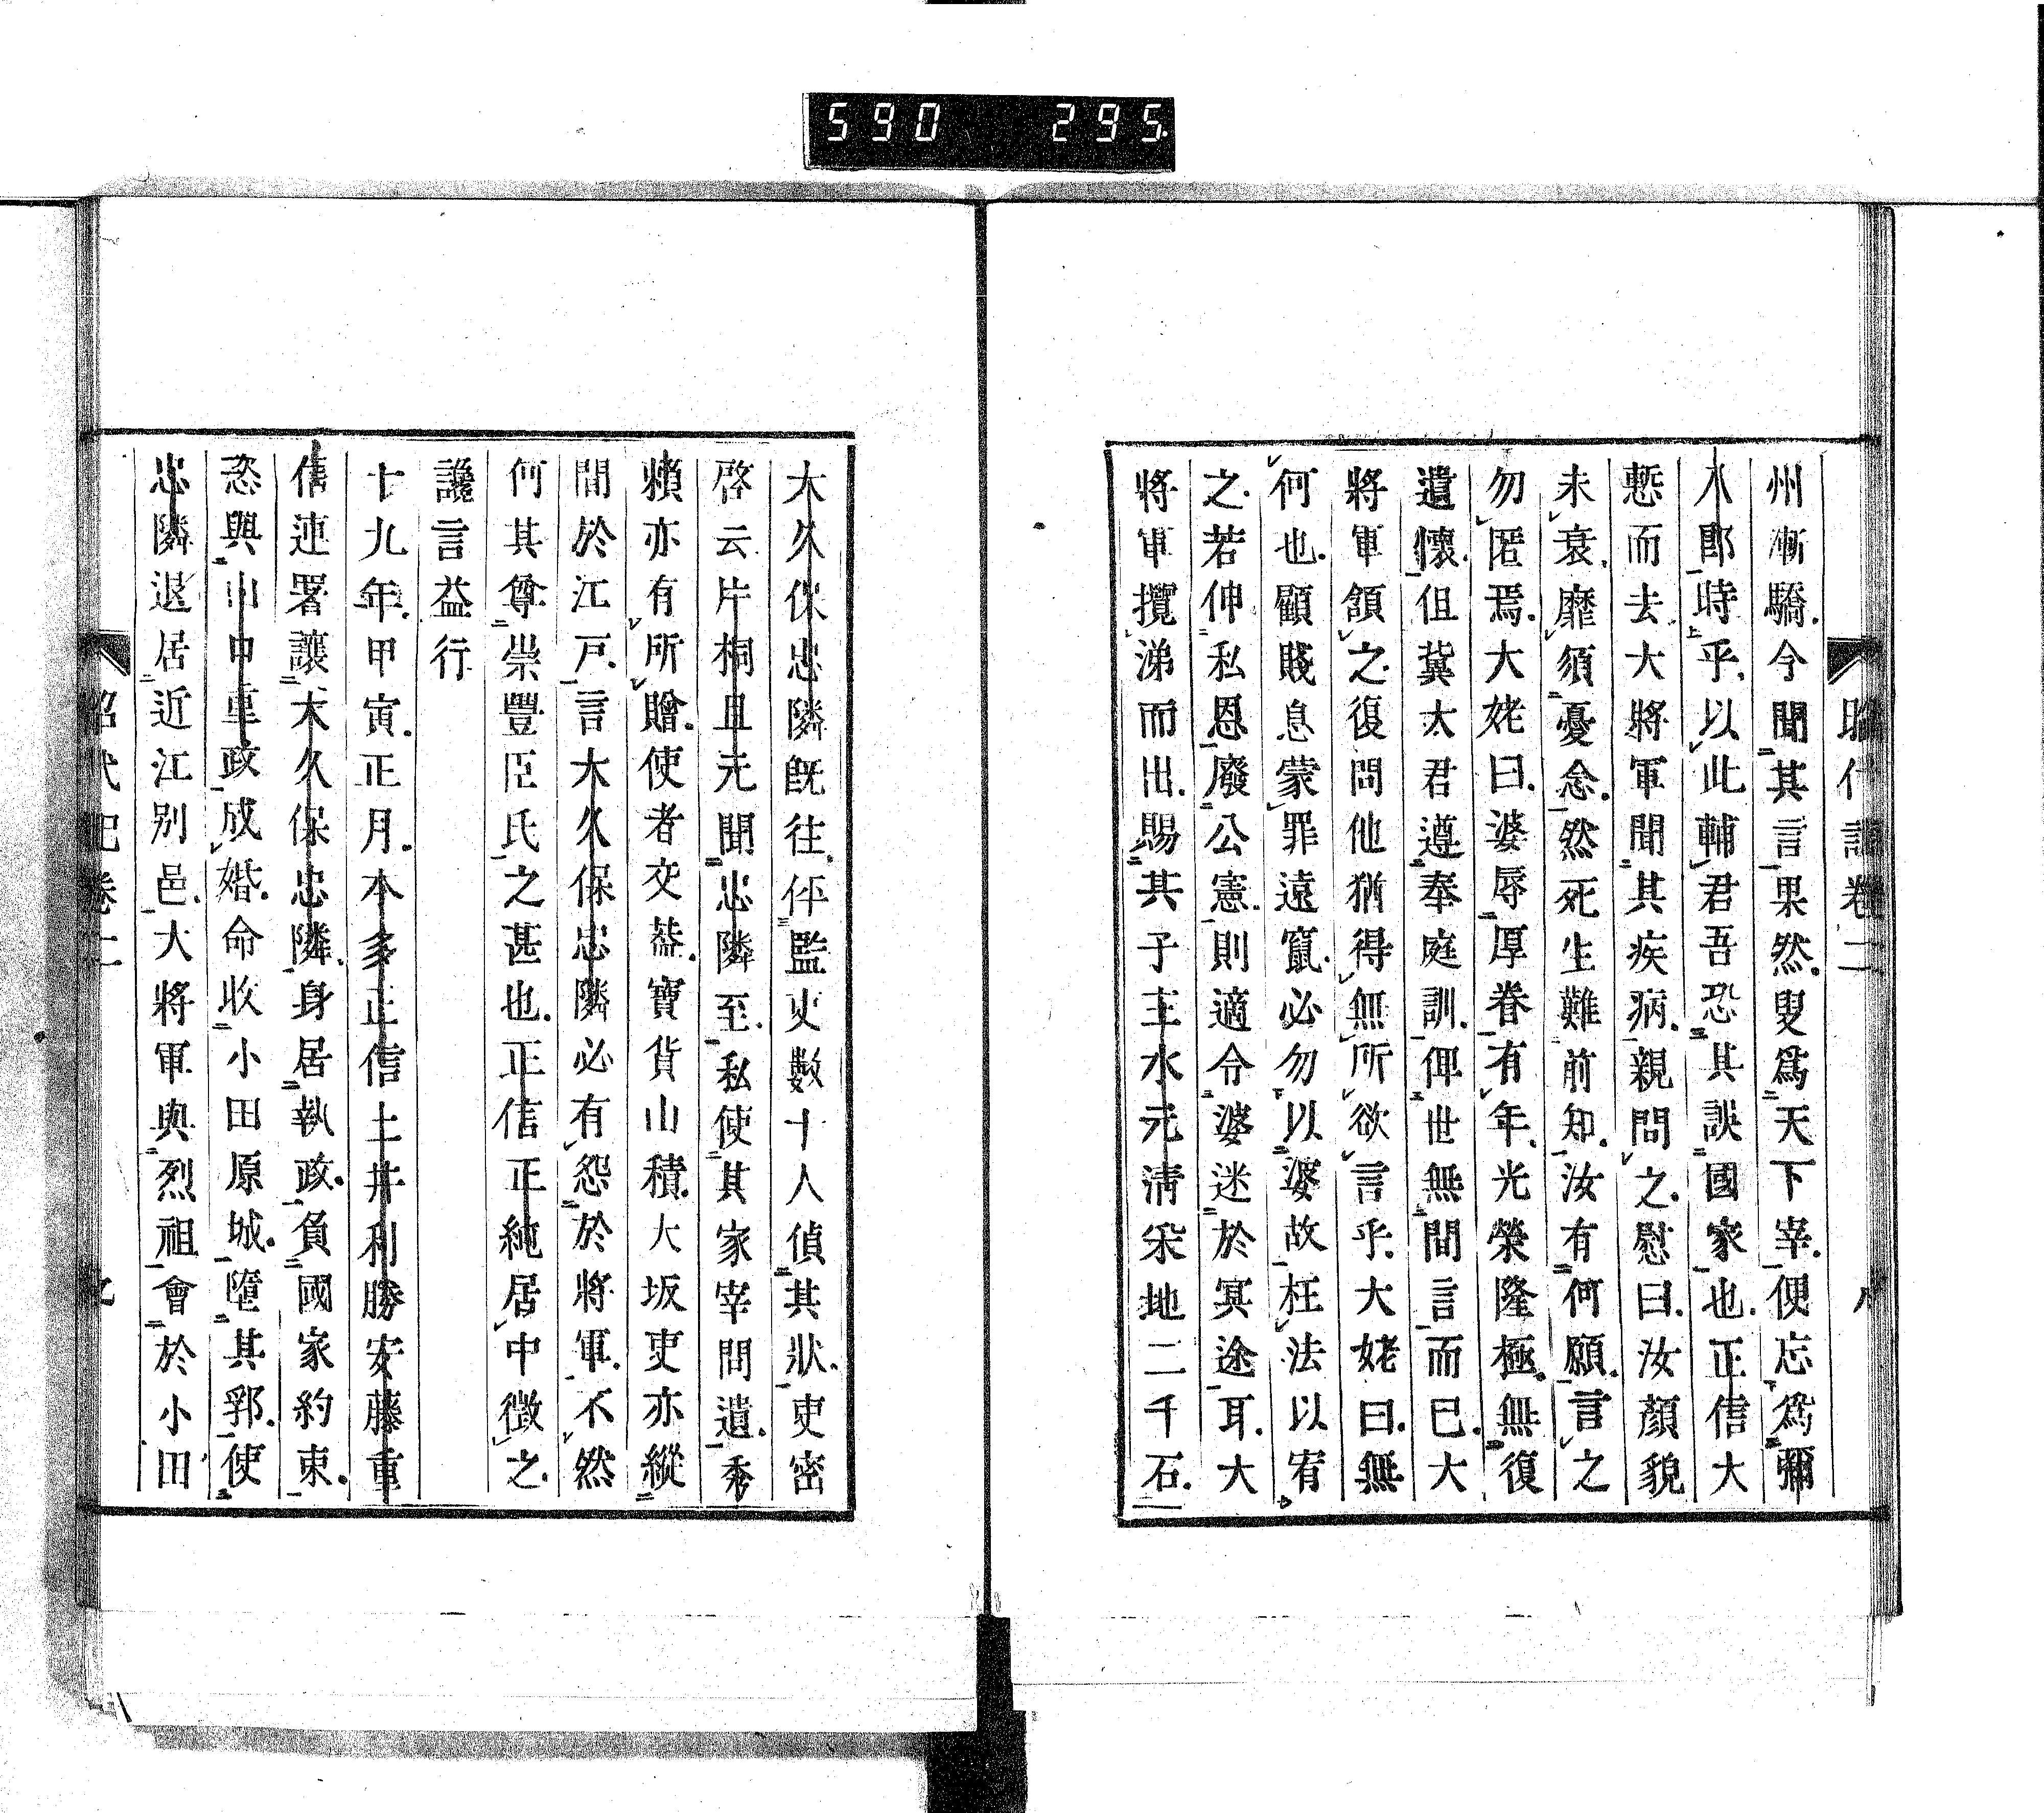 590 295
昭代記卷二 八
州漸驕.今聞其言果然.叟爲天下宰.便忘爲彌
八郎時乎.以此輔君吾恐其誤國家也.正信大
慙而去大將軍聞其疾病.親問之.慰曰.汝顏貌
未衰.靡須憂念.然死生難前知.汝有何願.言之
勿匿焉.大姥曰.婆辱厚眷有年.光榮隆極.無復
遺懷.但冀大君遵奉庭訓.俾世無間言而已.大
將軍頷之.復問他猶得無所欲言乎.大姥曰.無
何也.顧賤息蒙罪遠竄.必勿以婆故枉法以宥
之.若伸私恩.廢公憲.則適令婆迷於冥途耳.大
將軍攬涕而出.賜其子主水元淸采地二千石.
大久保忠隣旣往.伻監吏數十人偵其狀.吏密
啓云片桐且元聞忠隣至.私使其家宰問遺.秀
賴亦有所贈.使者交蓋.寶貨山積.大坂吏亦縱
間於江戸.言大久保忠隣必有怨於將軍.不然
何其尊崇豐臣氏之甚也.正信正純居中徵之.
讒言益行
十九年.甲寅.正月.本多正信土井利勝安藤重
信連署讓大久保忠隣.身居執政.負國家約束.
恣與山口重政成婚.命收小田原城.墮其郛.使
忠隣退居近江別邑.大將軍與烈祖會於小田
昭代記卷二 九